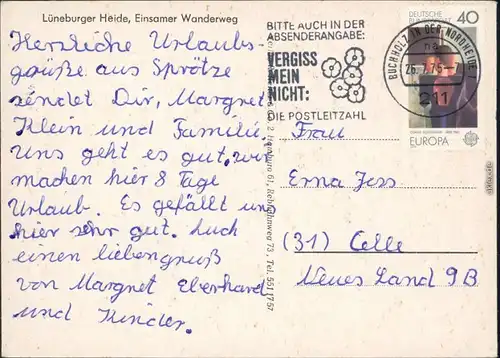 Lüneburger Heide, Einsamer Wanderweg
Herzliche Urlaubs-
grüße aus Sprötze
sendet Dir, Margret
Klein und Familie.
Uns geht es gut, wir
machen hier 8 Tage
Urlaub. Es gefällt uns
hier sehr gut. Auch
einen liebengruß
von Margret Eberhard
und Kinder.
BITTE AUCH IN DER
ABSENDERANGABE:
VERGISS
MEIN
NICHT:
DIE POSTLEITZAHL
BUCHHOLZ IN DER NORDHEIDE
na
26.7.75
211
DEUTSCHE
40
EUROPA
2 Hamburg 61, Rehrhahnweg 73, Tel. 551 17 57
Frau
Erna Jess
(31) Celle
Neues Land 9B